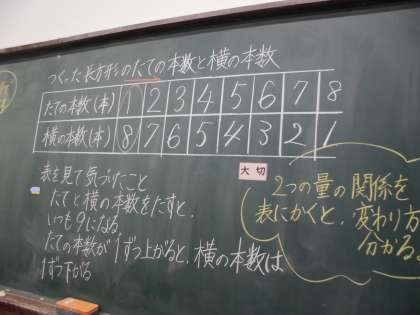 つくった長方形のたての本数と横の本数
たての本数(本) 1 2 3 4 5 6 7 8
横の本数(本) 8 7 6 5 4 3 2 1
表を見て気づいたこと
たてと横の本数をたすと、
いつも9になる。
たての本数が1ずつ上がると、横の本数は
1ずつ下がる
大切
2つの量の関係を
表にかくと、変わり方
分かる。